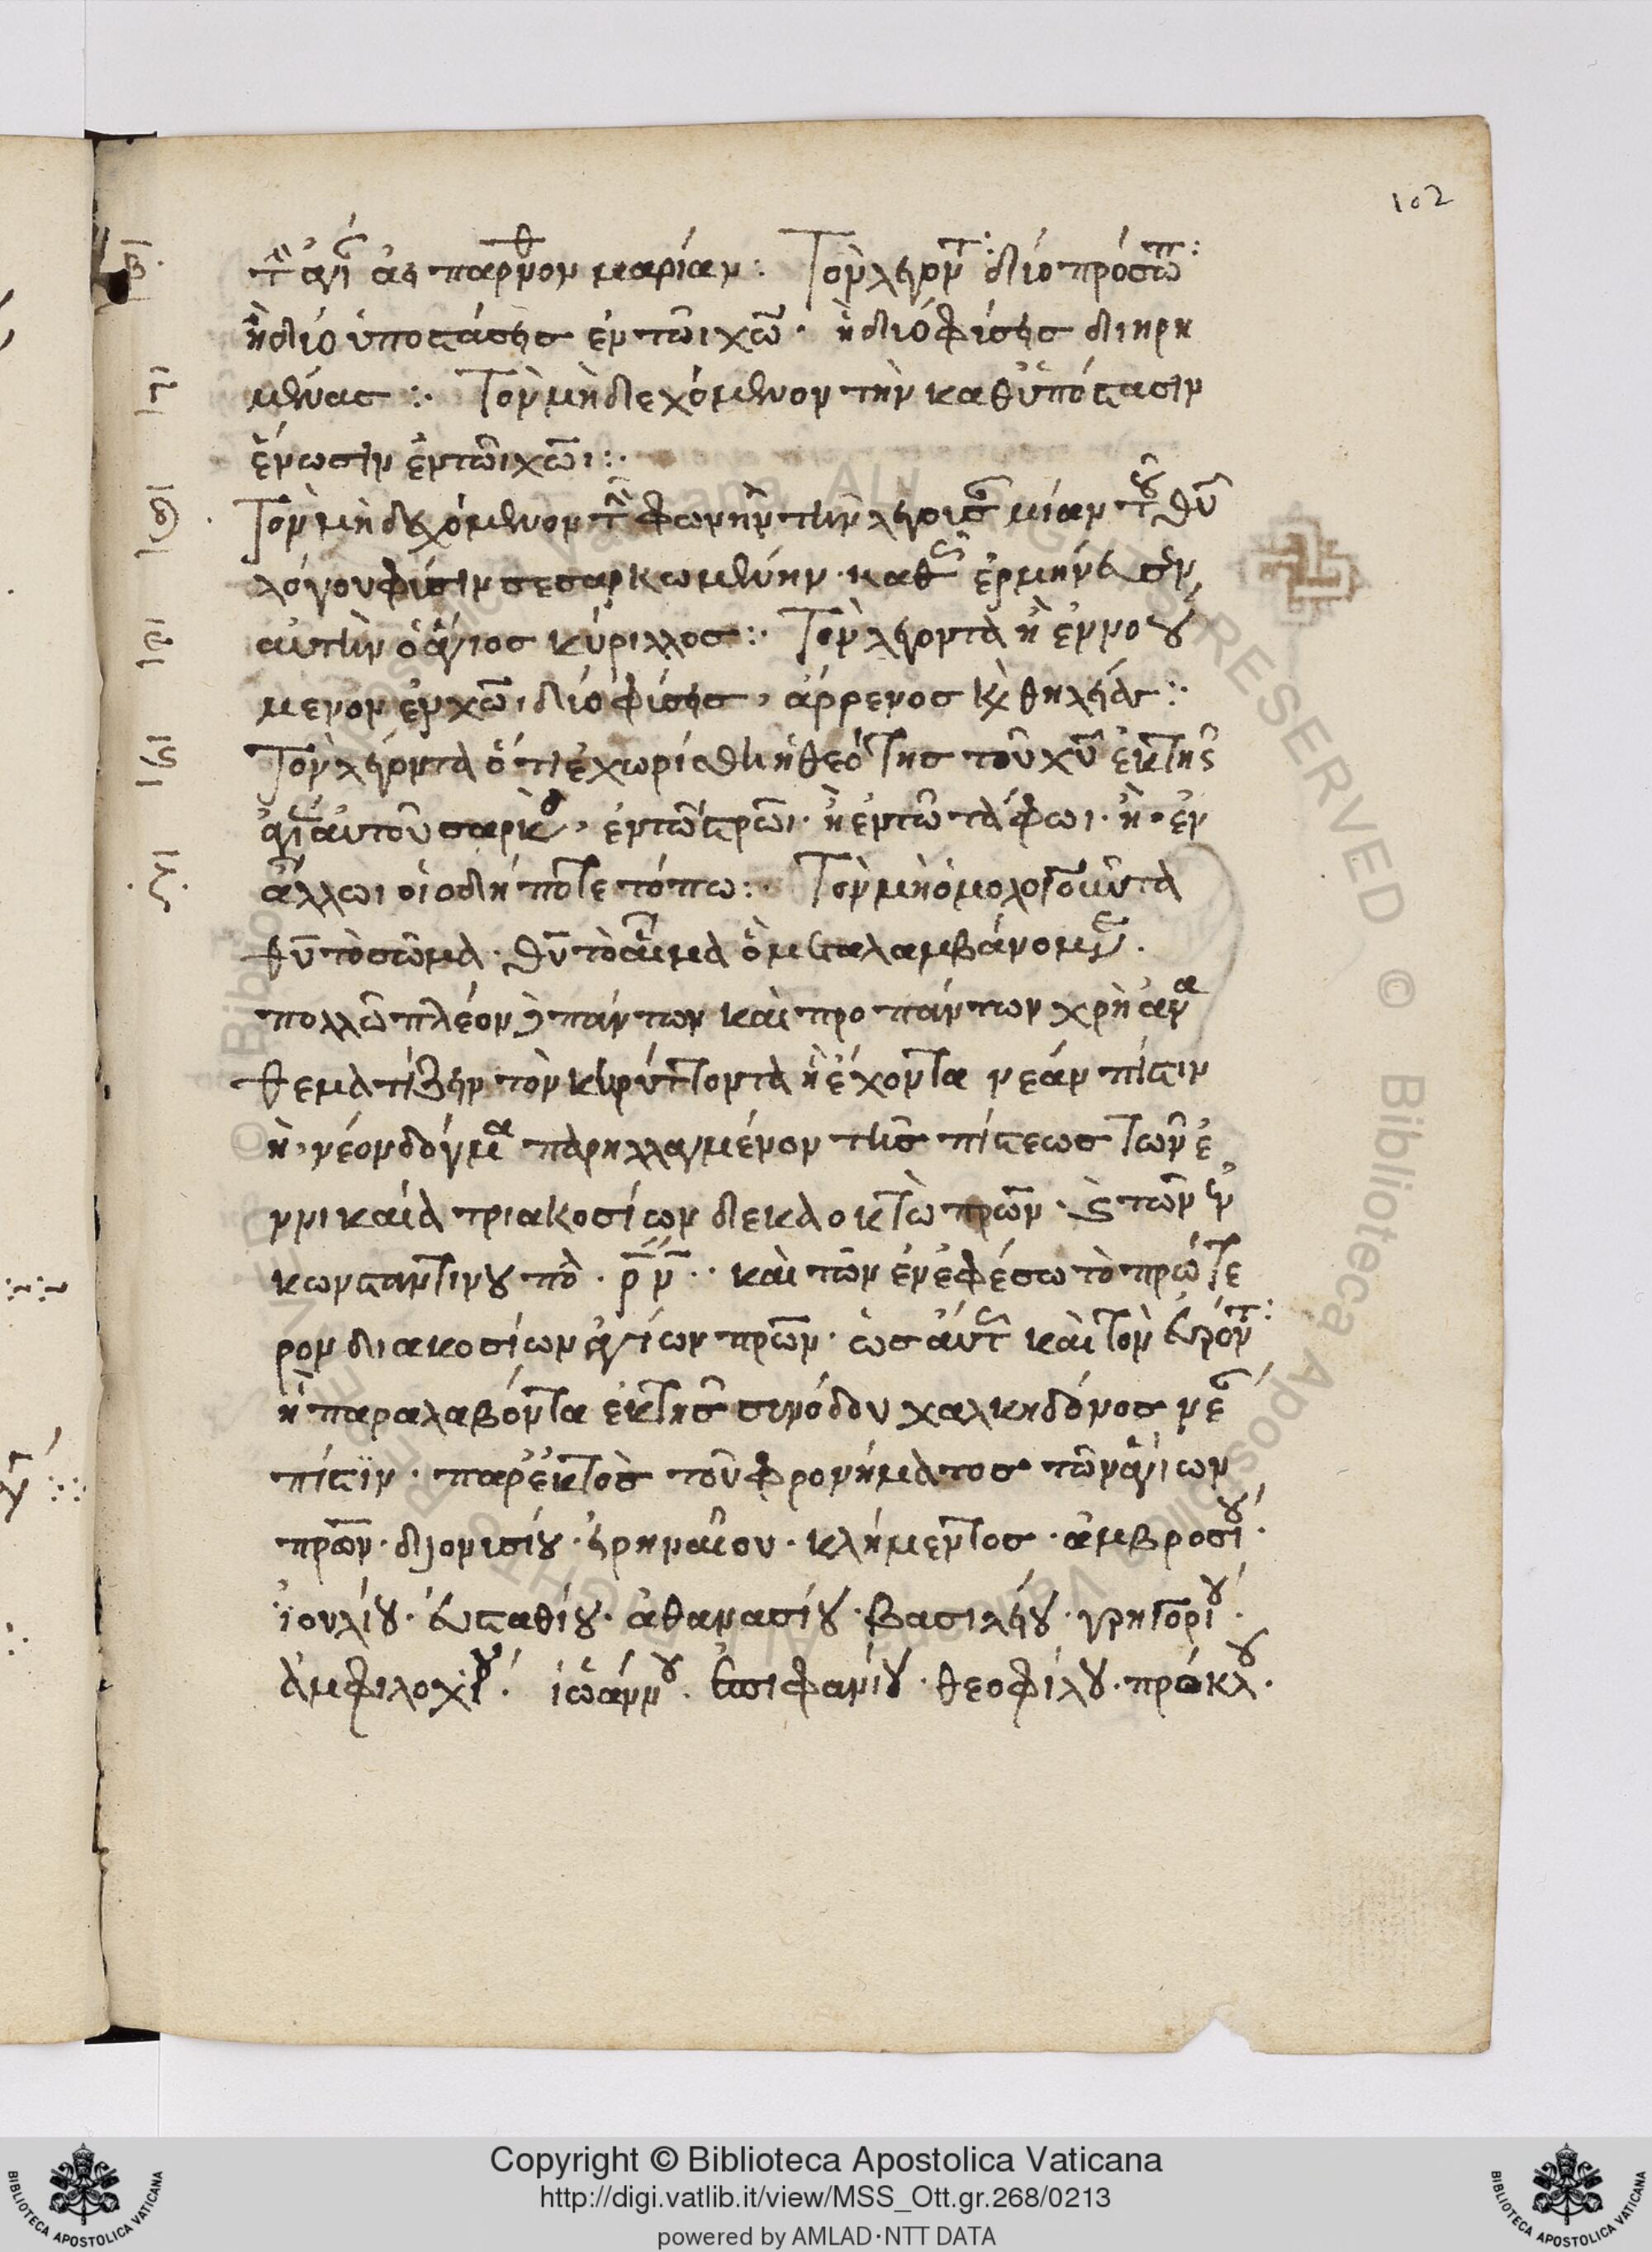 102
β
τ̀ ἁγί ἀει παρθνον μαρίαν : Τὸν λέγοντ : δίο πρόσωπ :
ἢ δίο ὑποστάσεις ἐν τῶι χω̅ · ἢ δίο φίσεις διηρη
γ
μένας :· Τὸν μὴ δεχόμενον τὴν καθ ὑπόστασιν
ἕνωσιν ἐν τῶι χω̅ι :·
δ
Τὸν μὴ δεχόμενον τ̀ φωνὴν τὴν λέγουσ μίαν τοῦ θυ̅
λόγου φίσιν σεσαρκωμένην · καθὼς ἑρμήνευσεν
ε
αὐτὴν ὁ ἅγιος κύριλλος :· Τὸν λέγοντα ἢ ἐννοού
μενον ἐν χω̅, δίο φίσεις, ἄρρενος κ θηλείας :·
ς
Τὸν λέγοντα ὅτι ἐχωρίσθη ἡ θεότης τοῦ χυ̅ ἐκ τῆς
ἁγί αὐτοῦ σαρκὸ, ἐν τῶ στρω̅ι · ἢ ἐν τῶ τάφωι · ἢ · ἐν
ζ
ἄλλωι οἱοδήποτε τόπω :· Τὸν μὴ ὁμολογοῦντα
θυ̅ τὸ σῶμα · θυ̅ τὸ αἷμα ὃ μεταλαμβάνομεν ·
πολλῶ πλέον πάντων καὶ προ πάντων χρὴ ἀνα
θεματίζειν τὸν κηρύττοντα ἢ ἔχοντα νεάν πίστιν
ἢ, νέον δόγμα παρηλλαγμένον τῆς πίστεως τῶν ἐ
ννικαία τριακοσίων δεκαοκτὼ πρω̅ν · κ τῶν ἐν
κωνσταντινου πὸ · ρ̅ν̅ · · καὶ τῶν ἐν ἐφέσω τὸ πρώτε
ρον διακοσίων ἁγίων πρω̅ν · ὡσαύτ καὶ τὸν εὑρόντ :
ἢ παραλαβόντα ἐκ τῆς συνόδου χαλκηδόνος νε
πίστϊν · παρἐκτὸς τοῦ φρονήματος τῶν ἁγίων
πρω̅ν · διονισίου · εἰρηναίου · κλήμεντος · ἀμβροσίου ·
ἰουλίου · εὐσταθίου · ἀθανασίου · βασιλείου · γρηγορίου ·
ἀμφιλοχίου · ἰωάννου · ἐπιφανίου · θεοφίλου · πρόκλ ·
Copyright © Biblioteca Apostolica Vaticana
http://digi.vatlib.it/view/MSS_Ott.gr.268/0213
powered by AMLAD·NTT DATA
BIBLIOTECA APOSTOLICA VATICANA
BIBLIOTECA APOSTOLICA VATICANA